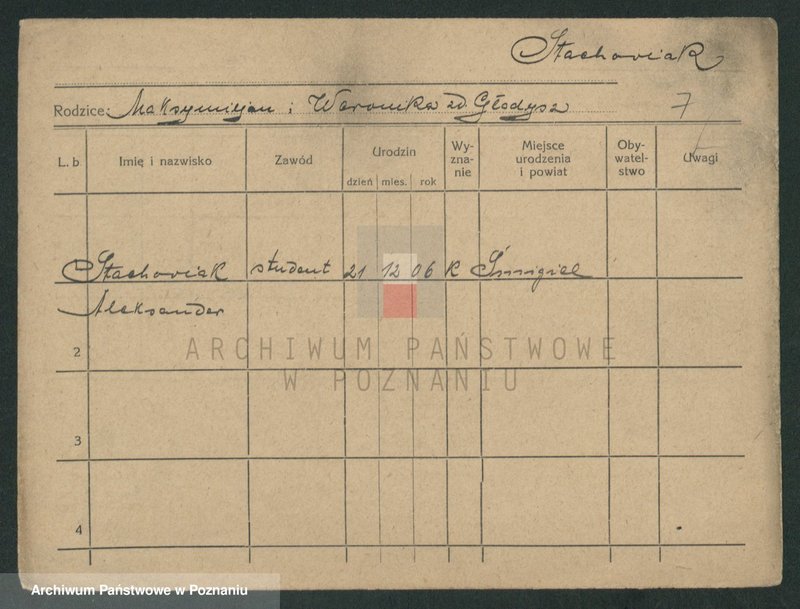 Stachoviak
Rodzice: Maksymiljan i Weronika zd. Głodysz
7
L. b. Imię i nazwisko Zawód Urodzin dzień mies. rok Wy-zna-nie Miejsce urodzenia i powiat Oby-watel-stwo Uwagi
Stachoviak student 21 12 06 K Śmigiel
Aleksander
2
ARCHIWUM PAŃSTWOWE
W POZNANIU
3
4
Archiwum Państwowe w Poznaniu